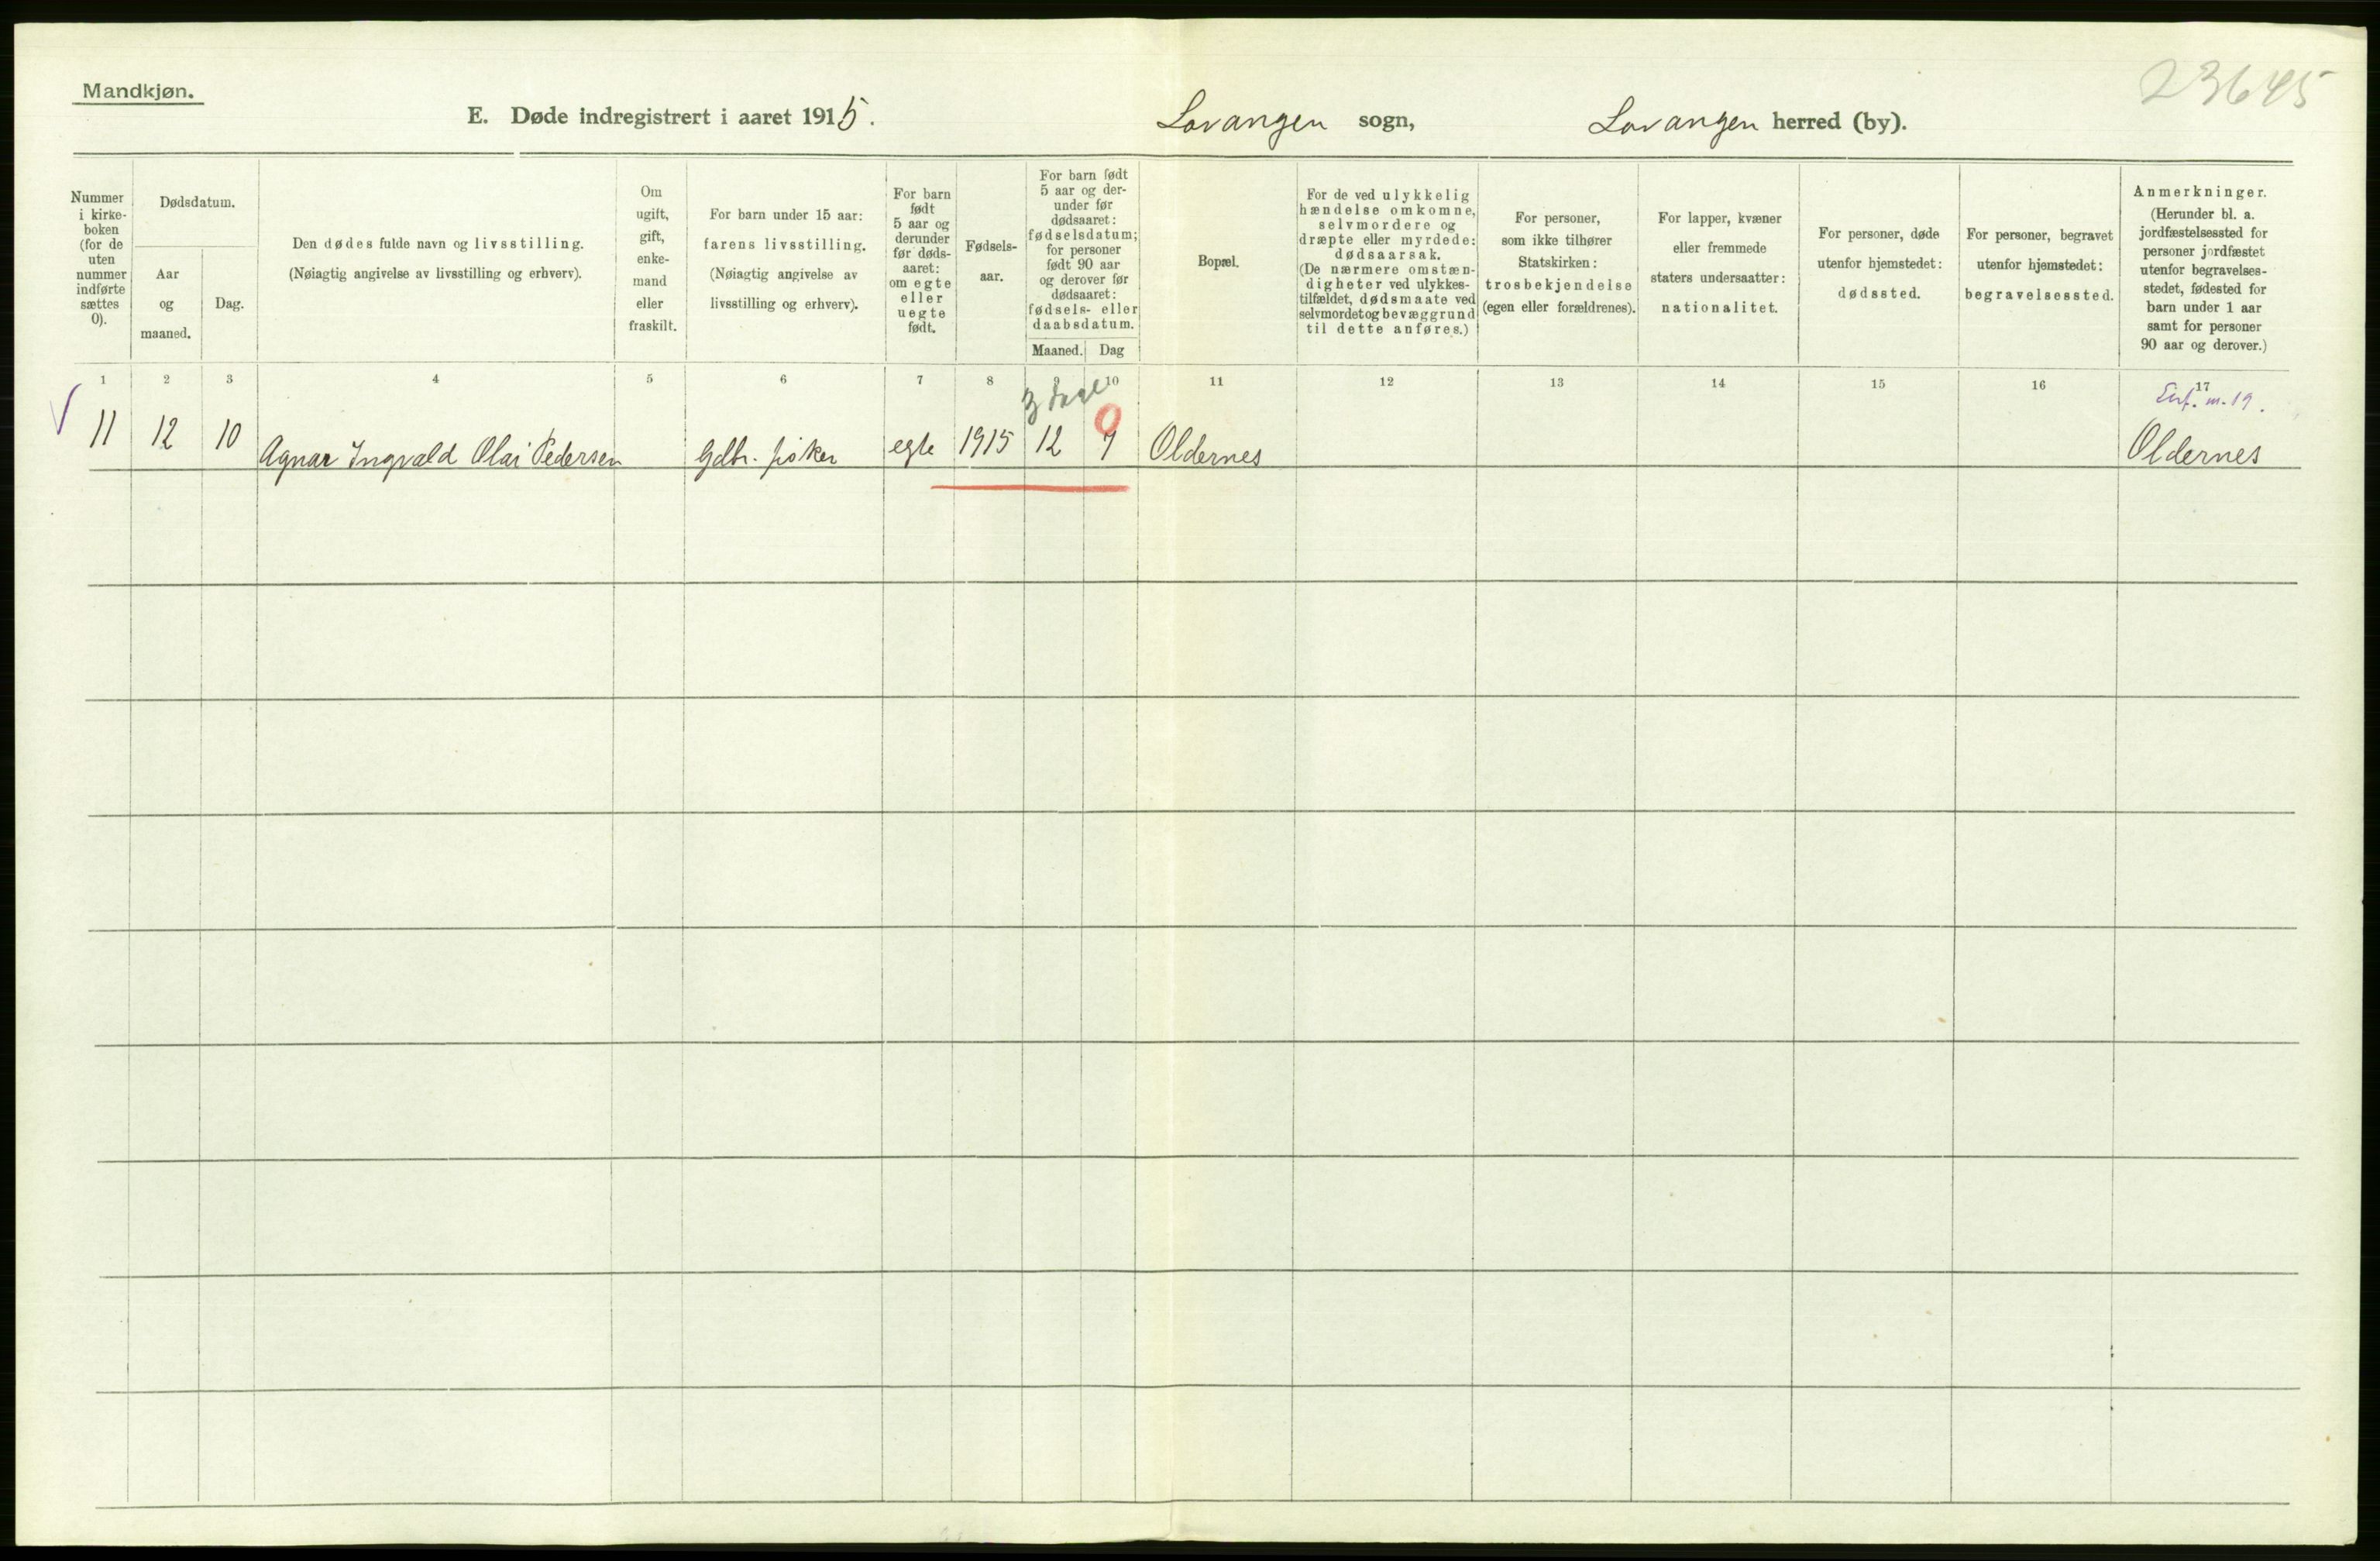 Mandkjøn.
23645
E. Døde indregistrert i aaret 1915. Lavangen sogn, Lavangen herred (by).
Nummer
i kirke-
boken
(for de
uten
nummer
indførte
sættes
0).
Dødsdatum.
Aar
og
maaned.
Dag.
Den dødes fulde navn og livsstilling.
(Nøiagtig angivelse av livsstilling og erhverv).
Om
ugift,
gift,
enke-
mand
eller
fraskilt.
For barn under 15 aar:
farens livsstilling.
(Nøiagtig angivelse av
livsstilling og erhverv).
For barn
født
5 aar og
derunder
før døds-
aaret:
om egte
eller
uegte
født.
Fødsels-
aar.
For barn født
5 aar og der-
under før
dødsaaret:
fødselsdatum;
for personer
født 90 aar
og derover før
dødsaaret:
fødsels- eller
daabsdatum.
Maaned. Dag
Bopæl.
For de ved ulykkelig
hændelse omkomne,
selvmordere og
dræpte eller myrdede:
dødsaarsak.
(De nærmere omstæn-
digheter ved ulykkes-
tilfældet, dødsmaate ved
selvmordet og bevæggrund
til dette anføres.)
For personer,
som ikke tilhører
Statskirken:
trosbekjendelse
(egen eller forældrenes).
For lapper, kvæner
eller fremmede
staters undersaatter:
nationalitet.
For personer, døde
utenfor hjemstedet:
dødssted.
For personer, begravet
utenfor hjemstedet:
begravelsessted.
Anmerkninger.
(Herunder bl. a.
jordfæstelsessted for
personer jordfæstet
utenfor begravelses-
stedet, fødested for
barn under 1 aar
samt for personer
90 aar og derover.)
1 2 3 4 5 6 7 8 9 10 11 12 13 14 15 16 17
3 dage
0
m. 19.
11 12 10 Agnar Ingvald Olai Pedersen Gdbr. fisker egte 1915 12 7 Oldernes Oldernes